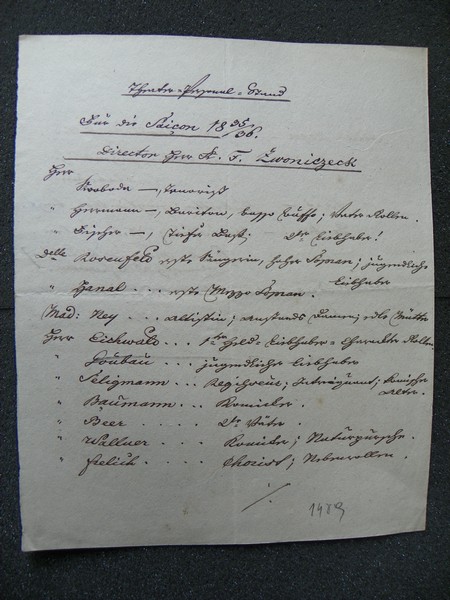 Theater-Personal-Stand
Für die Saiçon 18 35/36.
Director Herr K. F. Zwoniczeck
Herr
Swoboda —, Tenorist
" Herrmann —, Bariton, Basso Buffo; Vater Rollen.
" Fischer —, Tiefer Baß; Liebhaber!
Delle Rosenfeld erste Sängerin, hoher Sopran; jugendliche
Liebhaber
" Hanal . . . erste Mezzo Sopran.
Mad: Ney . . . Altistin; Anstands Damen; edle Mütter
Herr Eichwald . . . 1ter Held- Liebhaber- Charakter Rollen.
" . . . jugendlicher Liebhaber
" Seligmann . . . Regisseur; Intriguant; Komische
Alte.
" Baumann . . . Komicker.
" Beer . . . Väter.
" Wallner . . . Komicker; Naturpursche.
" . . . . Chorist; Nebenrollen.
./.